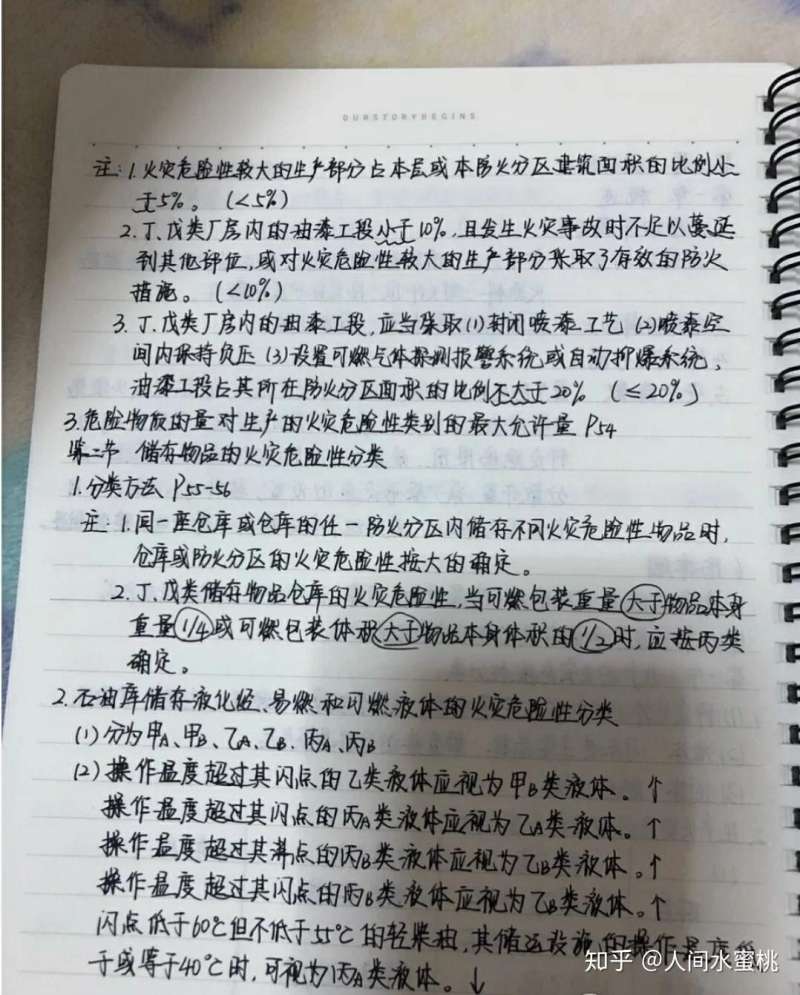 OURSTORYBEGINS
注:1.火灾危险性较大的生产部分占本层或本防火分区建筑面积的比例小
于5%。(<5%)
2.丁、戊类厂房内的油漆工段小于10%,且发生火灾事故时不足以蔓延
到其他部位,或对火灾危险性较大的生产部分采取了有效的防火
措施。(<10%)
3.丁、戊类厂房内的油漆工段,应当采取(1)封闭喷漆工艺 (2)喷漆空
间内保持负压 (3)设置可燃气体探测报警系统或自动抑爆系统,
油漆工段占其所在防火分区面积的比例不大于20% (≤20%)
3.危险物质的量对生产的火灾危险性类别的最大允许量 P54
第二节 储存物品的火灾危险性分类
1.分类方法 P55-56
注:1.同一座仓库或仓库的任一防火分区内储存不同火灾危险性物品时,
仓库或防火分区的火灾危险性按大的确定。
2.丁、戊类储存物品仓库的火灾危险性,当可燃包装重量大于物品本身
重量1/4或可燃包装体积大于物品本身体积的1/2时,应按丙类
确定。
2.石油库储存液化烃、易燃和可燃液体的火灾危险性分类
(1)分为甲A、甲B、乙A、乙B、丙A、丙B
(2)操作温度超过其闪点的乙类液体应视为甲B类液体。↑
操作温度超过其闪点的丙A类液体应视为乙A类液体。↑
操作温度超过其沸点的丙B类液体应视为乙B类液体。↑
操作温度超过其闪点的丙B类液体应视为乙B类液体。↑
闪点低于60℃但不低于55℃的轻柴油,其储运设施的操作温度低
于或等于40℃时,可视为丙A类液体。↓
知乎 @人间水蜜桃